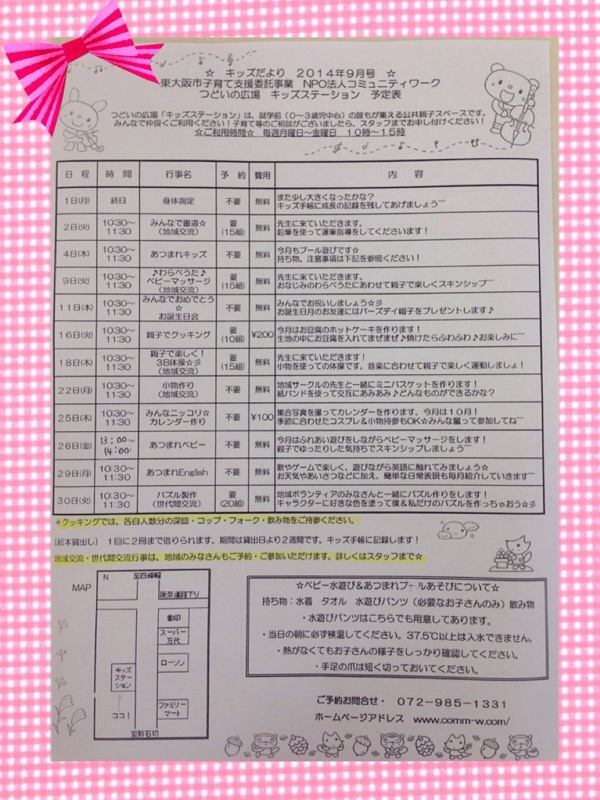 ☆ キッズだより 2014年9月号 ☆
東大阪市子育て支援委託事業 NPO法人コミュニティワーク
つどいの広場 キッズステーション 予定表
つどいの広場「キッズステーション」は、就学前(0~3歳児中心)の誰もが集える公共親子スペースです。
みんなで仲良くご利用ください!子育て等のご相談がございましたら、スタッフまでお申し付けください!
☆ご利用時間☆ 毎週月曜日~金曜日 10時~15時
日 程 時 間 行事名 予 約 費用 内 容
1日(月) 終日 身体測定 不要 無料 また少し大きくなったかな?
キッズ手帳に成長の記録を残してあげましょう~
2日(火) 10:30~11:30 みんなで書道☆(地域交流) 要(15組) 無料 先生に来ていただきます。
鉛筆を使って運筆指導をしてくださいます!
4日(木) 10:30~11:30 あつまれキッズ 不要 無料 今月もプール遊びです☆
持ち物、注意事項は下記を参照ください!
9日(火) 10:30~11:30 ♪わらべうた♪ベビーマッサージ(地域交流) 要(15組) 無料 先生に来ていただきます。
おなじみのわらべうたにあわせて親子で楽しくスキンシップ~
11日(木) 10:30~11:30 みんなでおめでとう☆お誕生日会 不要 無料 みんなでお祝いしましょう☆彡
お誕生日月のお友達にはバースデイ帽子をプレゼントします♪
16日(火) 10:30~11:30 親子でクッキング 要(10組) ¥200 今月はお豆腐のホットケーキを作ります!
生地の中にお豆腐を入れてまぜまぜ♪焼けたらふわふわ♪お楽しみに~
18日(木) 10:30~11:30 親子で楽しく!3B体操☆彡(地域交流) 要(15組) 無料 先生に来ていただきます!
小物を使っての体操です。音楽に合わせて親子で楽しく運動しましょ!
22日(月) 10:30~11:30 小物作り(地域交流) 不要 無料 地域サークルの先生と一緒にミニバスケットを作ります!
紙バンドを使って交互にあみあみ♪どんなものができるかな?
25日(木) 10:30~11:30 みんなニッコリ☆カレンダー作り 不要 ¥100 集合写真を撮ってカレンダーを作ります。今月は10月!
季節に合わせたコスプレ&小物持参もOK☆みんな奮って参加してね~
26日(金) 13:00~14:00 あつまれベビー 不要 無料 今月はふれあい遊びをしながらベビーマッサージをします!
親子でゆったりした気持ちでスキンシップしましょう~
29日(月) 10:30~11:30 あつまれEnglish 不要 無料 歌やゲームで楽しく、遊びながら英語に触れてみましょう☆
お天気やあいさつなどに加え、簡単な日常表現も毎月紹介していきます~
30日(火) 10:30~11:30 パズル製作(世代間交流) 要(20組) 無料 地域ボランティアのみなさんと一緒にパズル作りをします!
キャラクターに好きな色を塗って僕&私だけのパズルを作っちゃおう☆彡
*クッキングでは、各自人数分の深皿・コップ・フォーク・飲み物をご持参ください。
【絵本貸出し】 1回に2冊まで借りられます。期間は貸出日より2週間です。キッズ手帳に記録します!
地域交流・世代間交流行事は、地域のみなさんもご予約・ご参加いただけます。詳しくはスタッフまで☆
MAP
N
至四條畷
阪奈道路下り
象印
スーパー万代
ローソン
キッズステーション
ファミリーマート
ココ!
至新石切
☆ベビー水遊び&あつまれプールあそびについて☆
持ち物:水着 タオル 水遊びパンツ(必要なお子さんのみ)飲み物
・水遊びパンツはこちらでも用意してあります。
・当日の朝に必ず検温してください。37.5℃以上は入水できません。
・熱がなくてもお子さんの様子をしっかり確認してください。
・手足の爪は短く切っておいてください。
ご予約お問合せ・ 072-985-1331
ホームページアドレス www.comm-w.com/